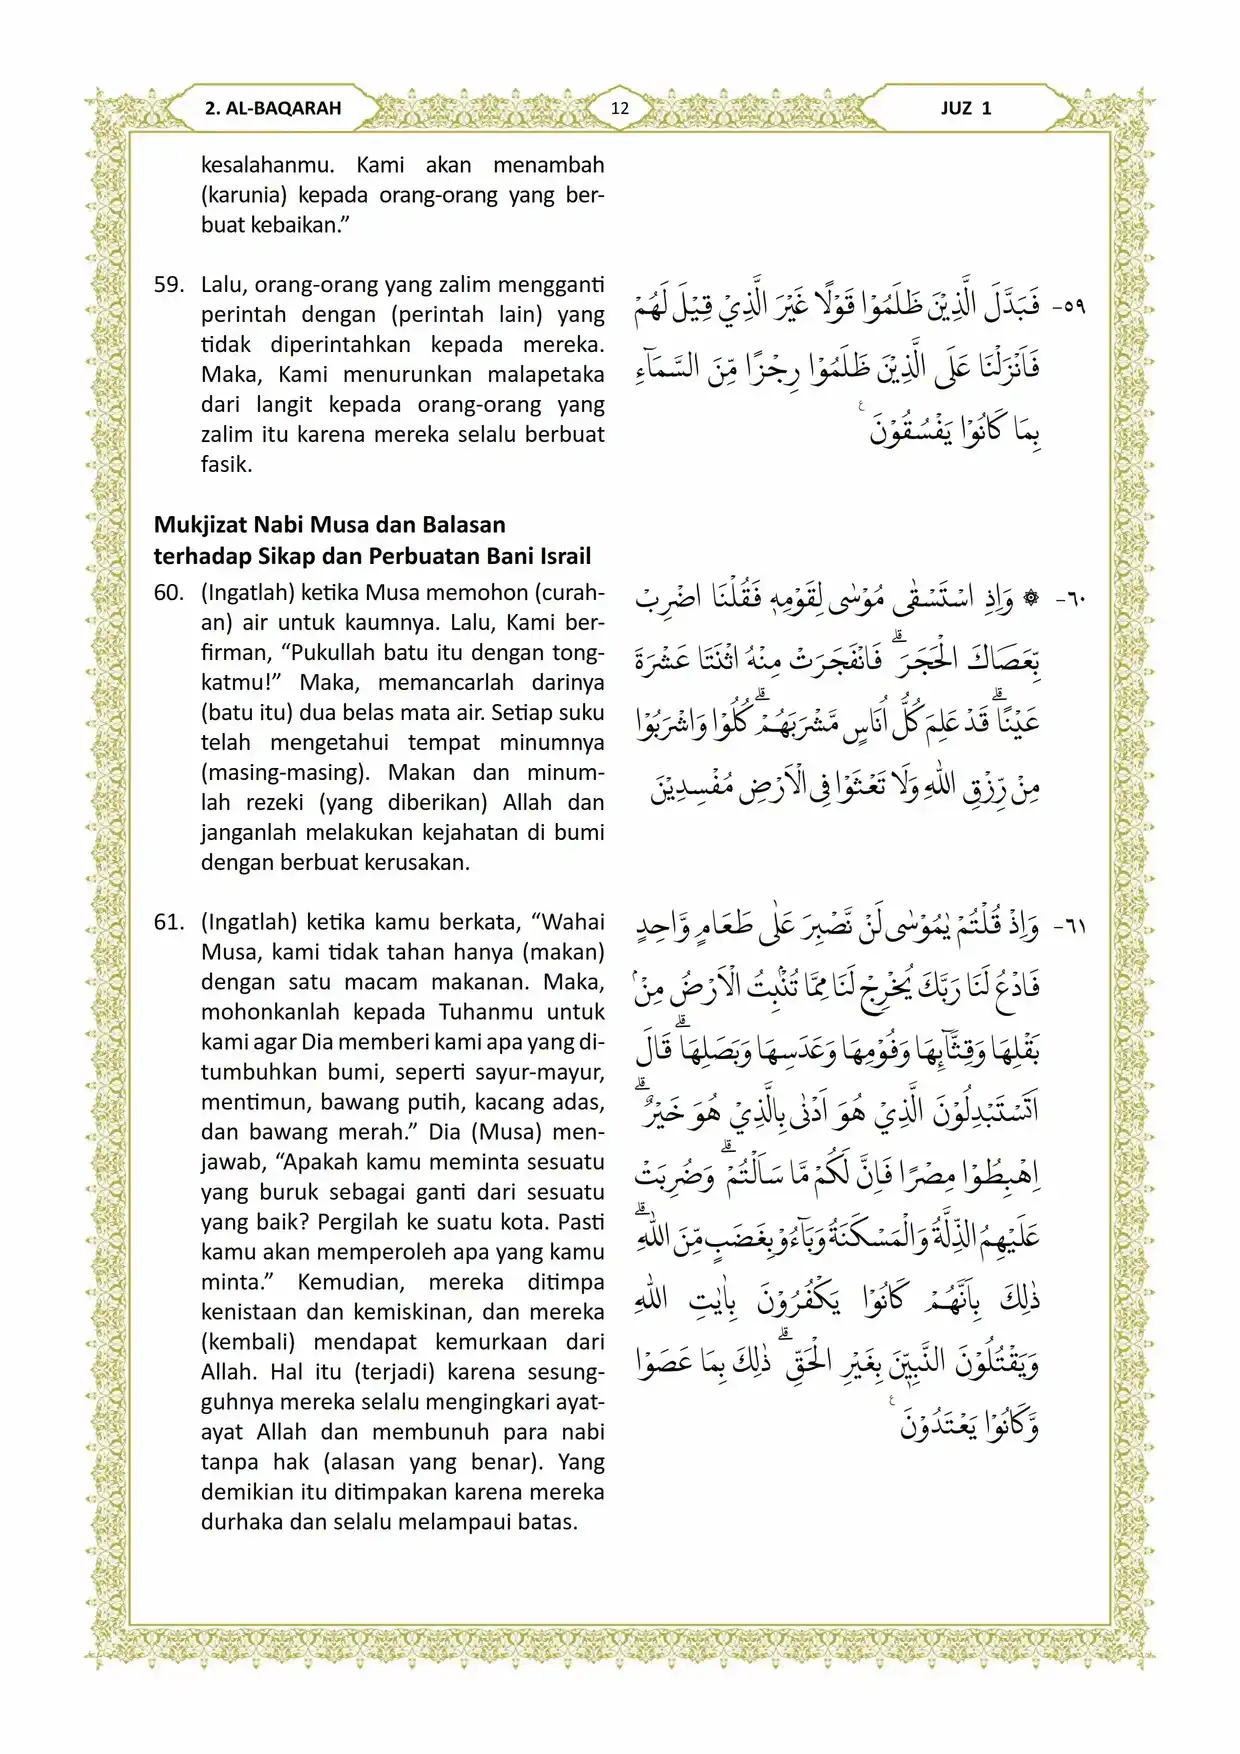 2. AL-BAQARAH
12
JUZ 1
kesalahanmu. Kami akan menambah
(karunia) kepada orang-orang yang ber-
buat kebaikan.”
59. Lalu, orang-orang yang zalim mengganti
perintah dengan (perintah lain) yang
tidak diperintahkan kepada mereka.
Maka, Kami menurunkan malapetaka
dari langit kepada orang-orang yang
zalim itu karena mereka selalu berbuat
fasik.
٥٩- فَبَدَّلَ الَّذِيْنَ ظَلَمُوْا قَوْلًا غَيْرَ الَّذِيْ قِيْلَ لَهُمْ
فَاَنْزَلْنَا عَلَى الَّذِيْنَ ظَلَمُوْا رِجْزًا مِّنَ السَّمَاۤءِ
بِمَا كَانُوْا يَفْسُقُوْنَ ࣖ
Mukjizat Nabi Musa dan Balasan
terhadap Sikap dan Perbuatan Bani Israil
60. (Ingatlah) ketika Musa memohon (curah-
an) air untuk kaumnya. Lalu, Kami ber-
firman, “Pukullah batu itu dengan tong-
katmu!” Maka, memancarlah darinya
(batu itu) dua belas mata air. Setiap suku
telah mengetahui tempat minumnya
(masing-masing). Makan dan minum-
lah rezeki (yang diberikan) Allah dan
janganlah melakukan kejahatan di bumi
dengan berbuat kerusakan.
٦٠- ۞ وَاِذِ اسْتَسْقٰى مُوْسٰى لِقَوْمِهٖ فَقُلْنَا اضْرِبْ
بِّعَصَاكَ الْحَجَرَۗ فَانْفَجَرَتْ مِنْهُ اثْنَتَا عَشْرَةَ
عَيْنًاۗ قَدْ عَلِمَ كُلُّ اُنَاسٍ مَّشْرَبَهُمْۗ كُلُوْا وَاشْرَبُوْا
مِنْ رِّزْقِ اللّٰهِ وَلَا تَعْثَوْا فِى الْاَرْضِ مُفْسِدِيْنَ
61. (Ingatlah) ketika kamu berkata, “Wahai
Musa, kami tidak tahan hanya (makan)
dengan satu macam makanan. Maka,
mohonkanlah kepada Tuhanmu untuk
kami agar Dia memberi kami apa yang di-
tumbuhkan bumi, seperti sayur-mayur,
mentimun, bawang putih, kacang adas,
dan bawang merah.” Dia (Musa) men-
jawab, “Apakah kamu meminta sesuatu
yang buruk sebagai ganti dari sesuatu
yang baik? Pergilah ke suatu kota. Pasti
kamu akan memperoleh apa yang kamu
minta.” Kemudian, mereka ditimpa
kenistaan dan kemiskinan, dan mereka
(kembali) mendapat kemurkaan dari
Allah. Hal itu (terjadi) karena sesung-
guhnya mereka selalu mengingkari ayat-
ayat Allah dan membunuh para nabi
tanpa hak (alasan yang benar). Yang
demikian itu ditimpakan karena mereka
durhaka dan selalu melampaui batas.
٦١- وَاِذْ قُلْتُمْ يٰمُوْسٰى لَنْ نَّصْبِرَ عَلٰى طَعَامٍ وَّاحِدٍ
فَادْعُ لَنَا رَبَّكَ يُخْرِجْ لَنَا مِمَّا تُنْۢبِتُ الْاَرْضُ مِنْۢ
بَقْلِهَا وَقِثَّاۤىِٕهَا وَفُوْمِهَا وَعَدَسِهَا وَبَصَلِهَاۗ قَالَ
اَتَسْتَبْدِلُوْنَ الَّذِيْ هُوَ اَدْنٰى بِالَّذِيْ هُوَ خَيْرٌۗ
اِهْبِطُوْا مِصْرًا فَاِنَّ لَكُمْ مَّا سَاَلْتُمْۗ وَضُرِبَتْ
عَلَيْهِمُ الذِّلَّةُ وَالْمَسْكَنَةُ وَبَاۤءُوْ بِغَضَبٍ مِّنَ اللّٰهِۗ
ذٰلِكَ بِاَنَّهُمْ كَانُوْا يَكْفُرُوْنَ بِاٰيٰتِ اللّٰهِ
وَيَقْتُلُوْنَ النَّبِيّٖنَ بِغَيْرِ الْحَقِّۗ ذٰلِكَ بِمَا عَصَوْا
وَّكَانُوْا يَعْتَدُوْنَ ࣖ